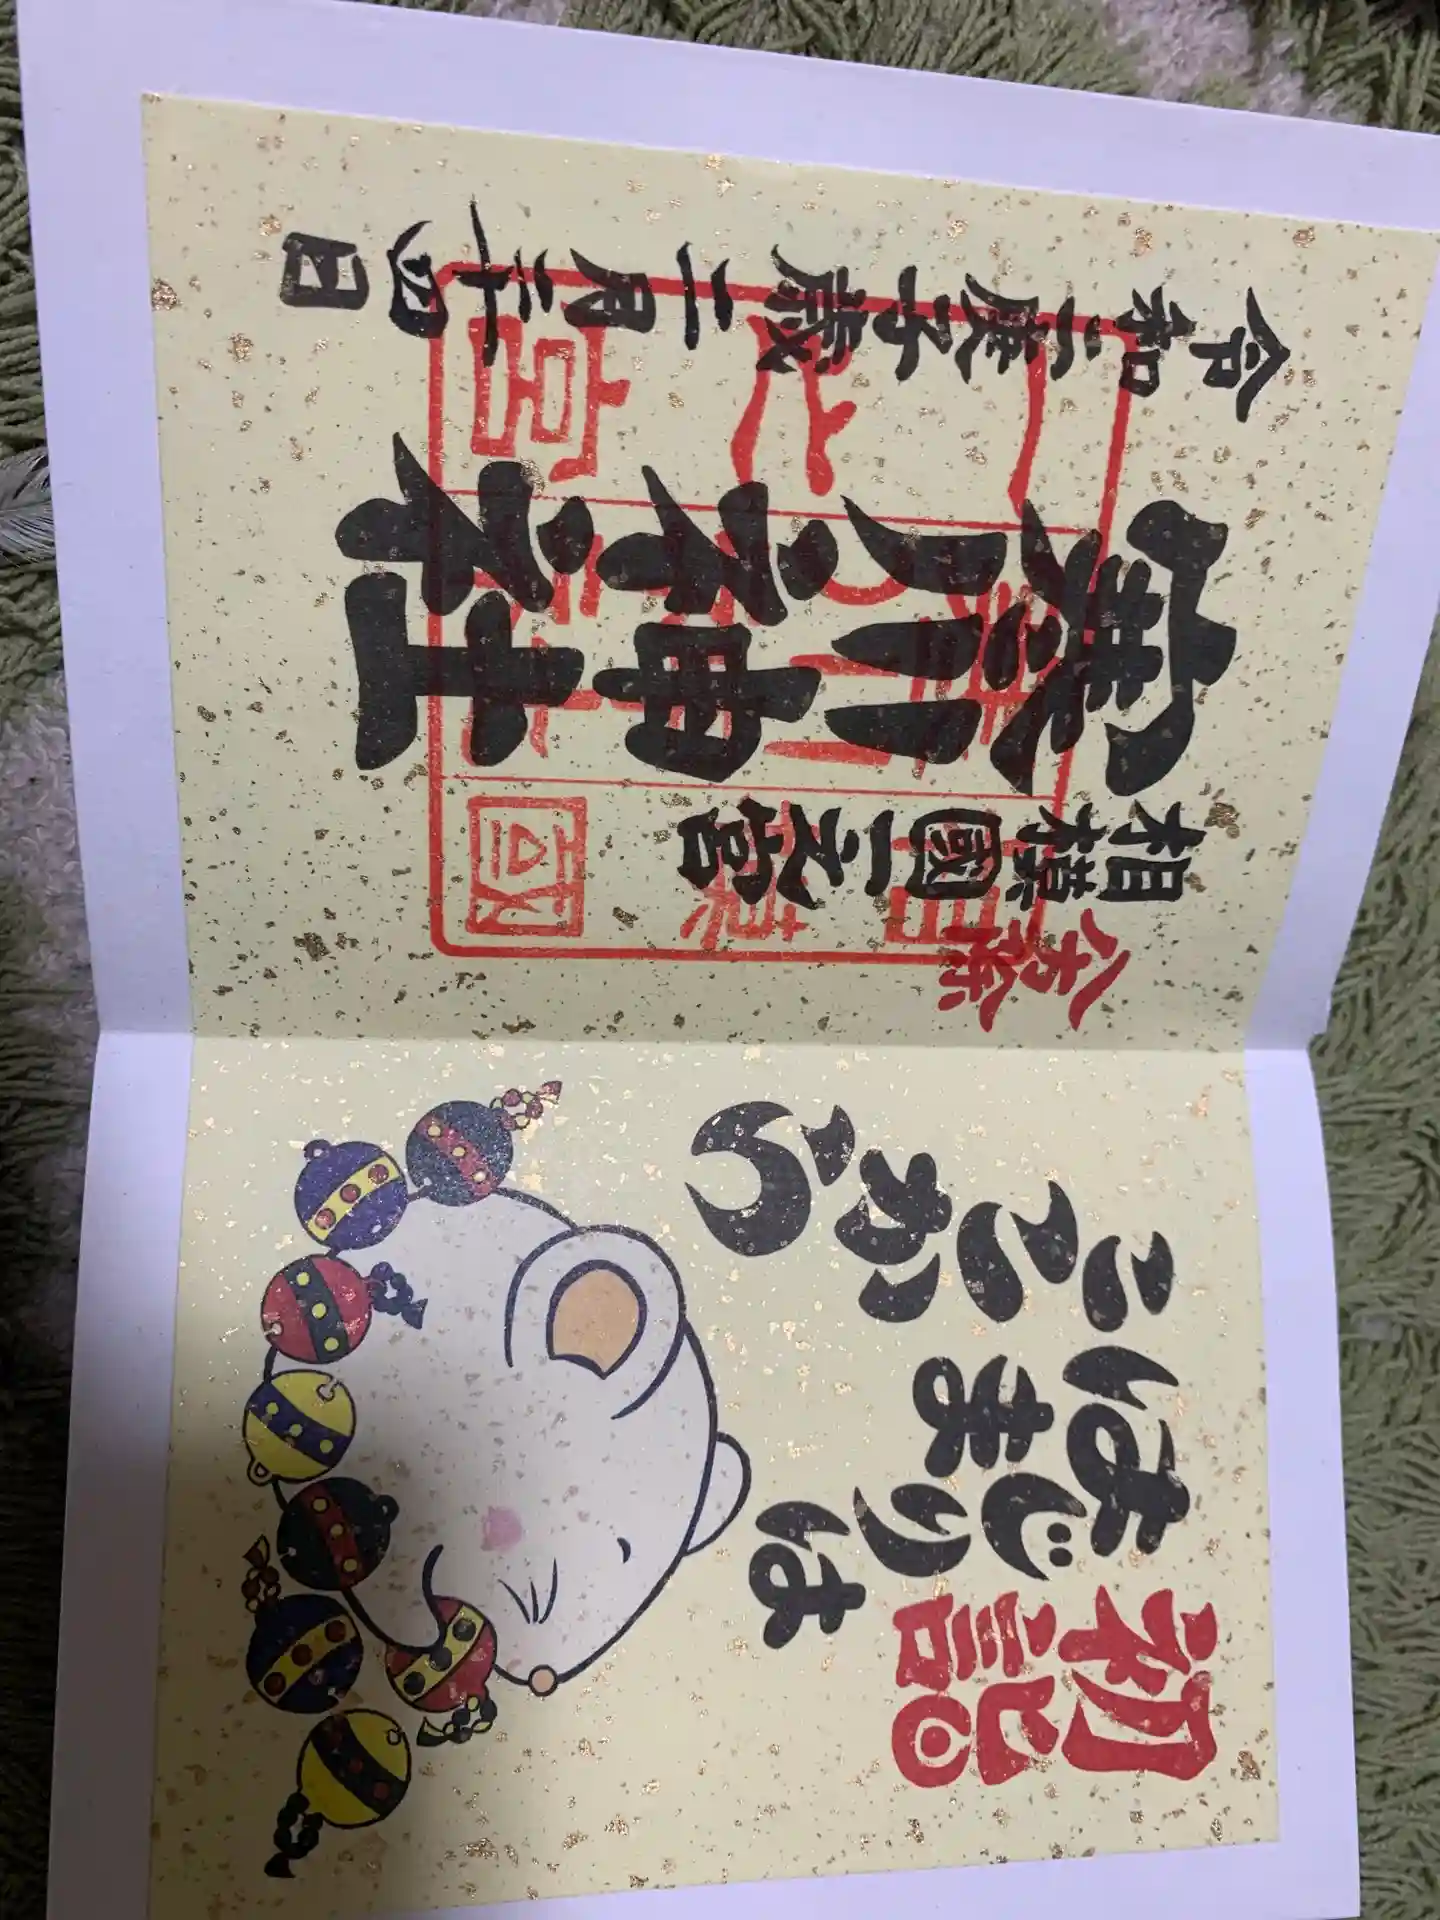 初詣
はじまりは
ここから
八方除
相模國一之宮
寒川神社
令和二庚子歳二月二十四日